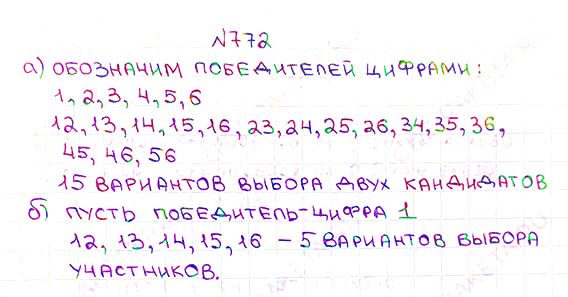 №772
а) ОБОЗНАЧИМ ПОБЕДИТЕЛЕЙ ЦИФРАМИ:
1, 2, 3, 4, 5, 6
12, 13, 14, 15, 16, 23, 24, 25, 26, 34, 35, 36,
45, 46, 56
15 ВАРИАНТОВ ВЫБОРА ДВУХ КАНДИДАТОВ
б) ПУСТЬ ПОБЕДИТЕЛЬ-ЦИФРА 1
12, 13, 14, 15, 16 - 5 ВАРИАНТОВ ВЫБОРА
УЧАСТНИКОВ.